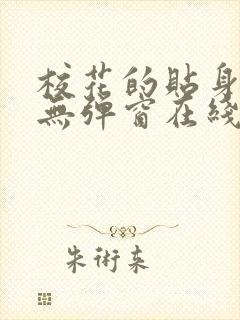 校花的貼身
無彈窗在綫
朱術来